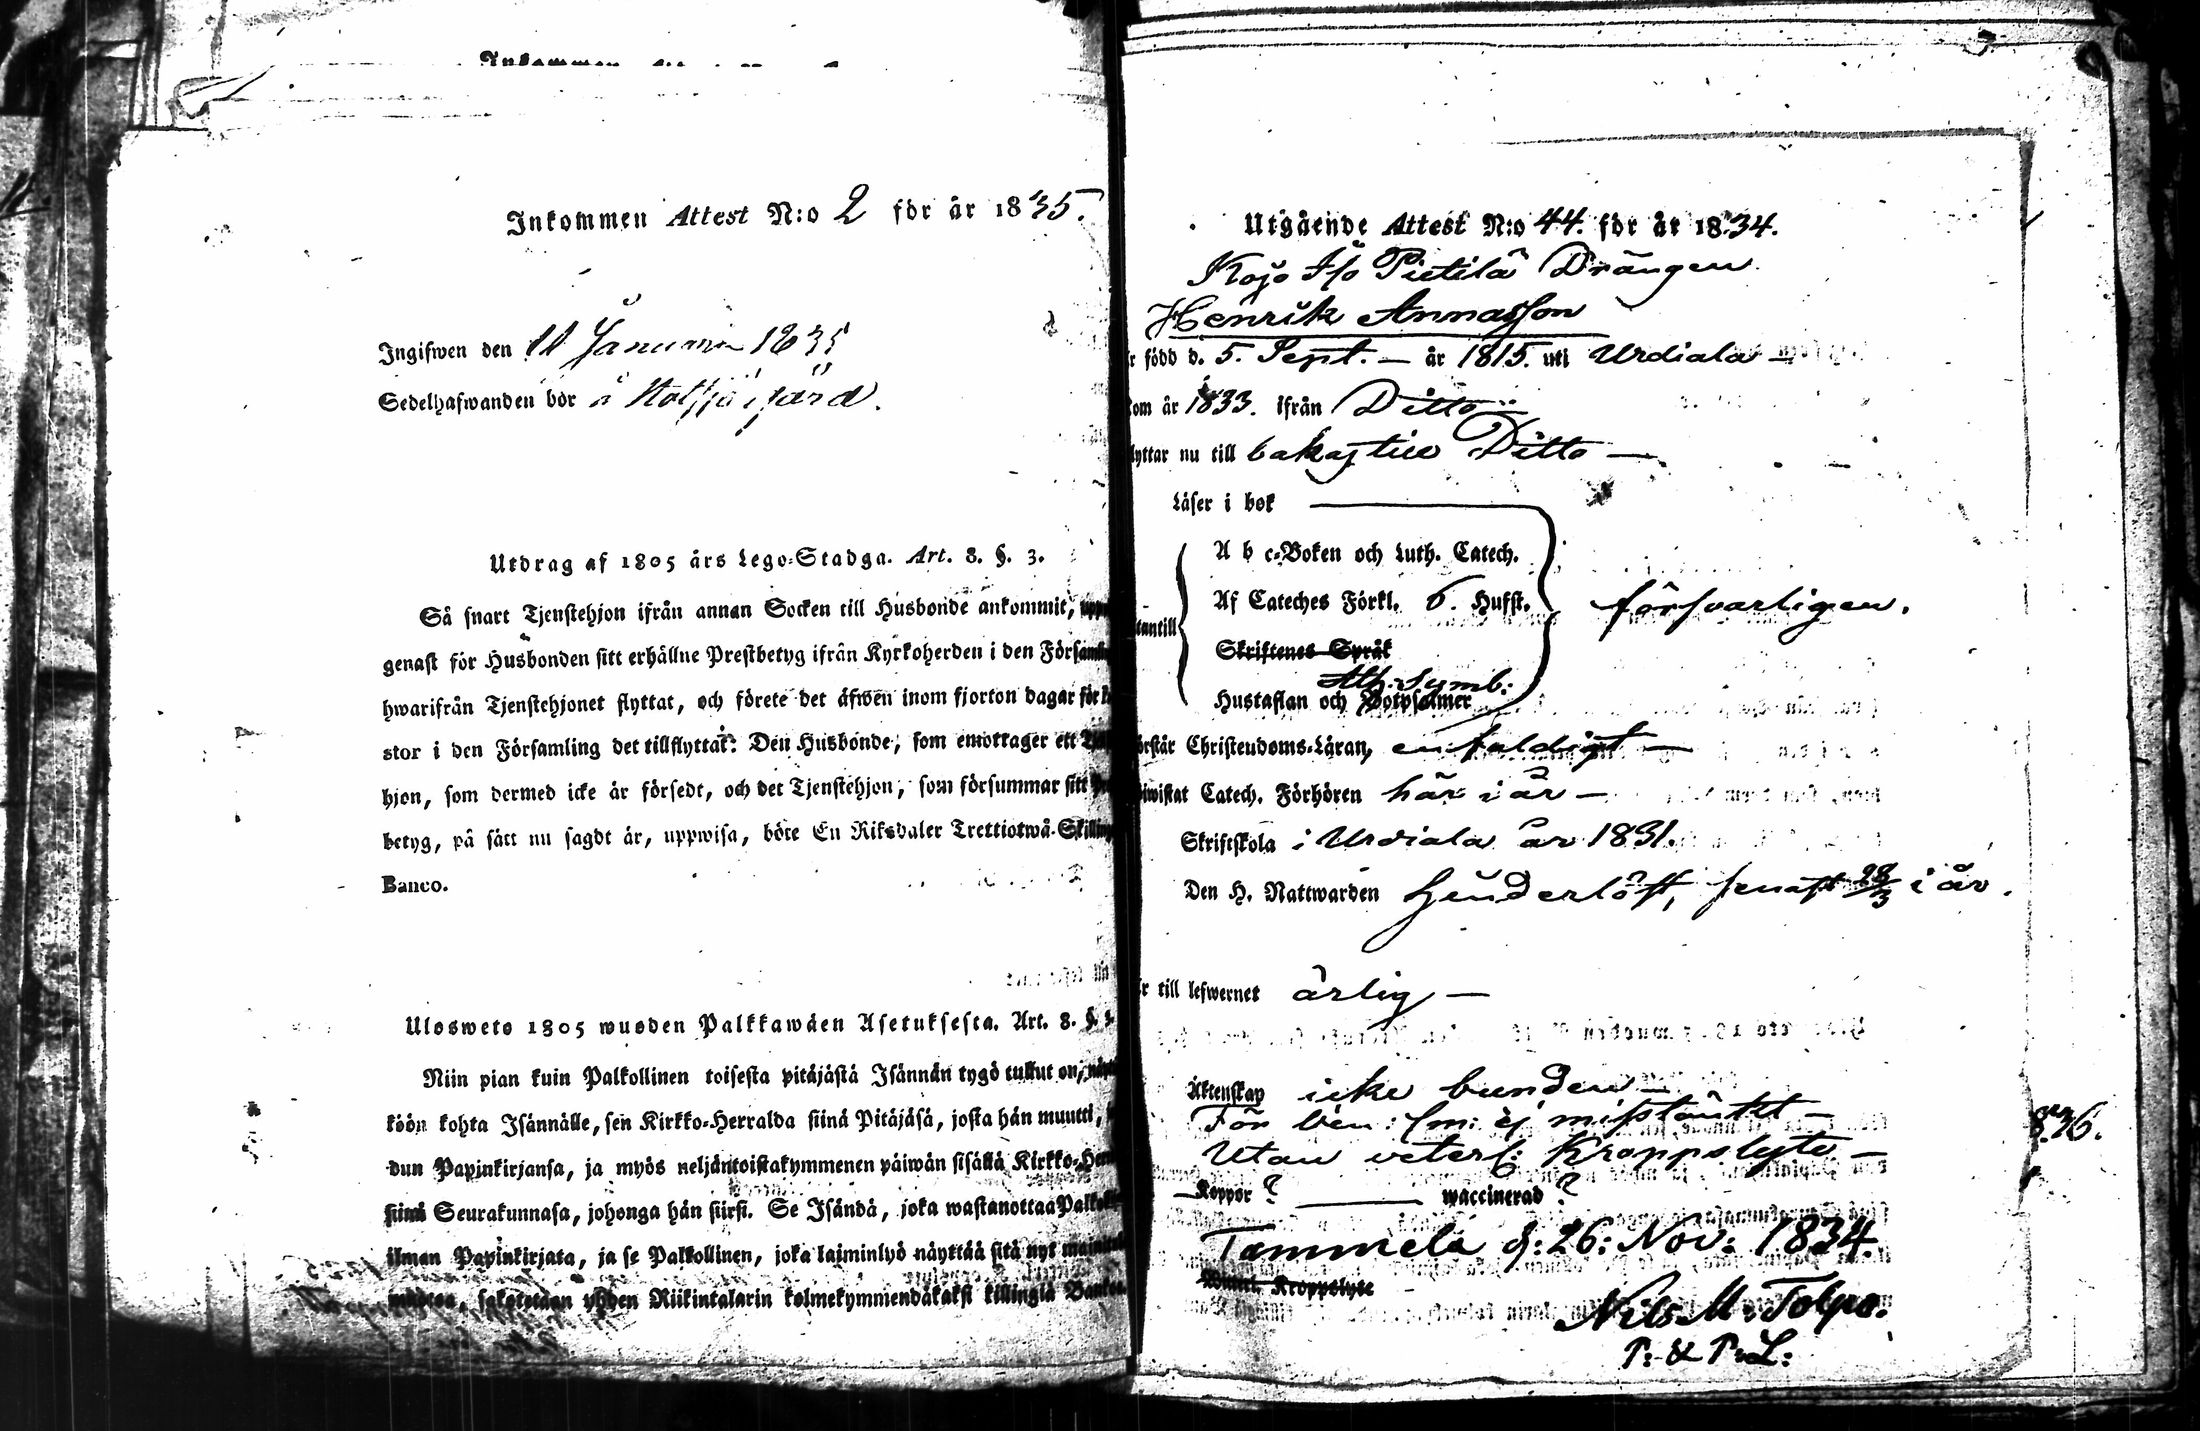 Inkommen Attest N:o 2 för år 1835.
Ingifwen den 11 Januarii 1835
Sedelhafwanden bor å
Utdrag af 1805 års Lego-Stadga. Art. 8. §. 3.
Så snart Tjenstehjon ifrån annan Socken till Husbonde ankommit,
genast för Husbonden sitt erhållne Prestbetyg ifrån Kyrkoherden i den
hwarifrån Tjenstehjonet flyttat, och förete det äfwen inom fjorton dagar för
stor i den Församling det tillflyttat: Den Husbonde, som emottager ett
hjon, som dermed icke är försedt, och det Tjenstehjon, som försummar sitt
betyg, på sätt nu sagdt är, uppwisa, böte En Riksdaler Trettiotwå Skilling
Banco.
Ulosweto 1805 wuoden Palkkawäen Asetuksesta. Art. 8. §. 3.
Niin pian kuin Palkollinen toisesta pitäjästä Isännän tygö tullut on,
köön kohta Isännälle, sen Kirkko-Herralda siinä Pitäjäsä, josta hän muutti,
dun Papinkirjansa, ja myös neljäntoistakymmenen päiwän sisällä
siinä Seurakunnasa, johonga hän siirsi. Se Isändä, joka wastanottaa
ilman Papinkirjata, ja se Palkollinen, joka laiminlyö näyttää sitä nyt
sakotetaan yhden Riikintalarin kolmekymmendäkaksi killingiä
Utgående Attest N:o 44. för år 1834.
Kojo Pietilä Drängen
Henrik Annasson
född d. 5. Sept. — år 1815. uti Urdiala —
år 1833. ifrån Ditto —
nu till bakastill Ditto —
Läser i bok
A b c-Boken och Luth. Catech.
Af Cateches Förkl. 6. Hufst. försvarligen.
Skriftenes Språk
Ath: Symb:
Hustaflan och Botpsalmer
Christendoms-Läran, enfaldigt —
Catech. Förhören här i år —
Skriftskola i Urdiala år 1831.
Den H. Nattwarden senast 28/3 i år.
till lefwernet ärlig —
Äktenskap icke bunden —
För ej misstänkt —
Utan Kroppslyte —
Koppor ? waccinerad ?
Tammela d: 26: Nov: 1834.
Kroppslyte
Nils M. Tolpo.
P: & P: L: